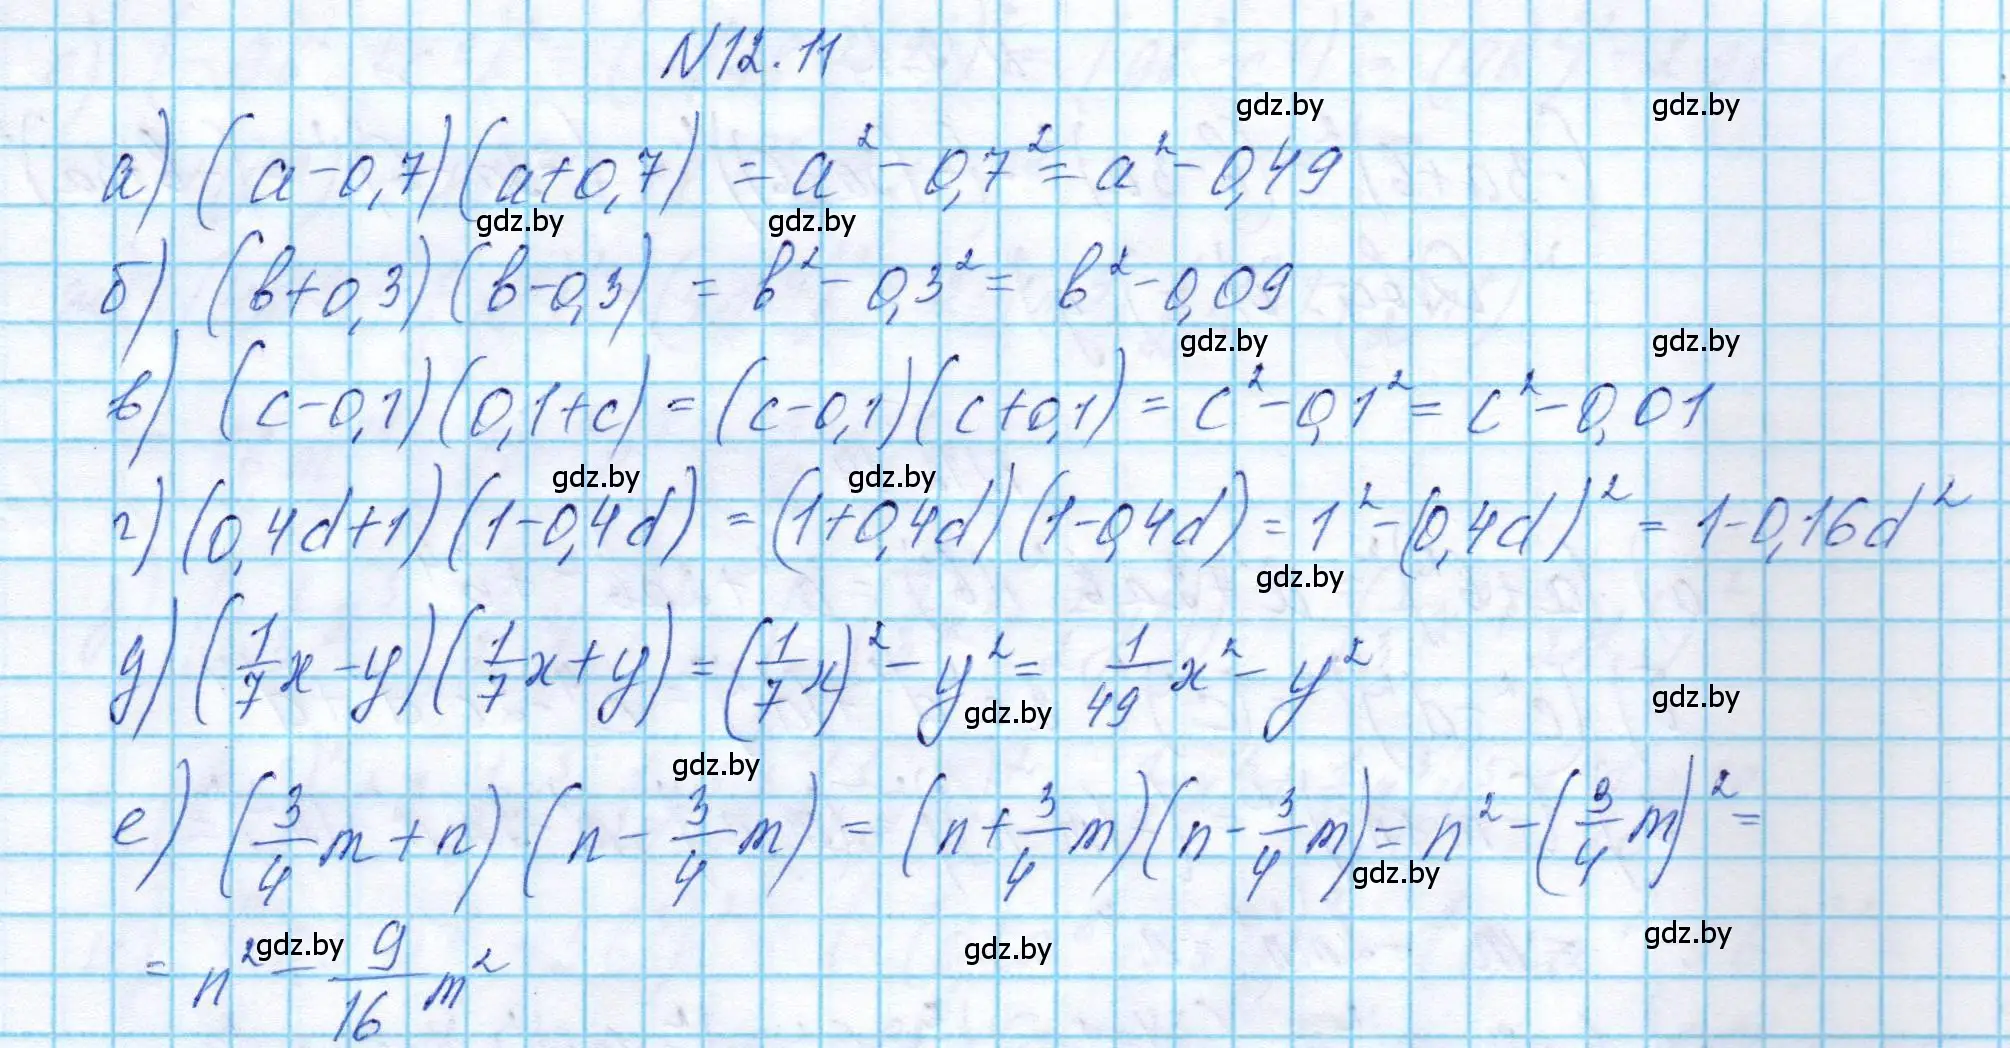 N12.11
gdz.by gdz.by
а) (a-0,7)(a+0,7) = a² - 0,7² = a² - 0,49
gdz.by gdz.by
б) (b+0,3)(b-0,3) = b² - 0,3² = b² - 0,09
gdz.by gdz.by
в) (c-0,1)(0,1+c) = (c-0,1)(c+0,1) = c² - 0,1² = c² - 0,01
gdz.by gdz.by
г) (0,4d+1)(1-0,4d) = (1+0,4d)(1-0,4d) = 1² - (0,4d)² = 1 - 0,16d²
gdz.by
д) (1/7x - y)(1/7x + y) = (1/7x)² - y² = 1/49x² - y²
gdz.by gdz.by
gdz.by
е) (3/4m + n)(n - 3/4m) = (n + 3/4m)(n - 3/4m) = n² - (3/4m)² =
gdz.by
= n² - 9/16m²
gdz.by gdz.by gdz.by